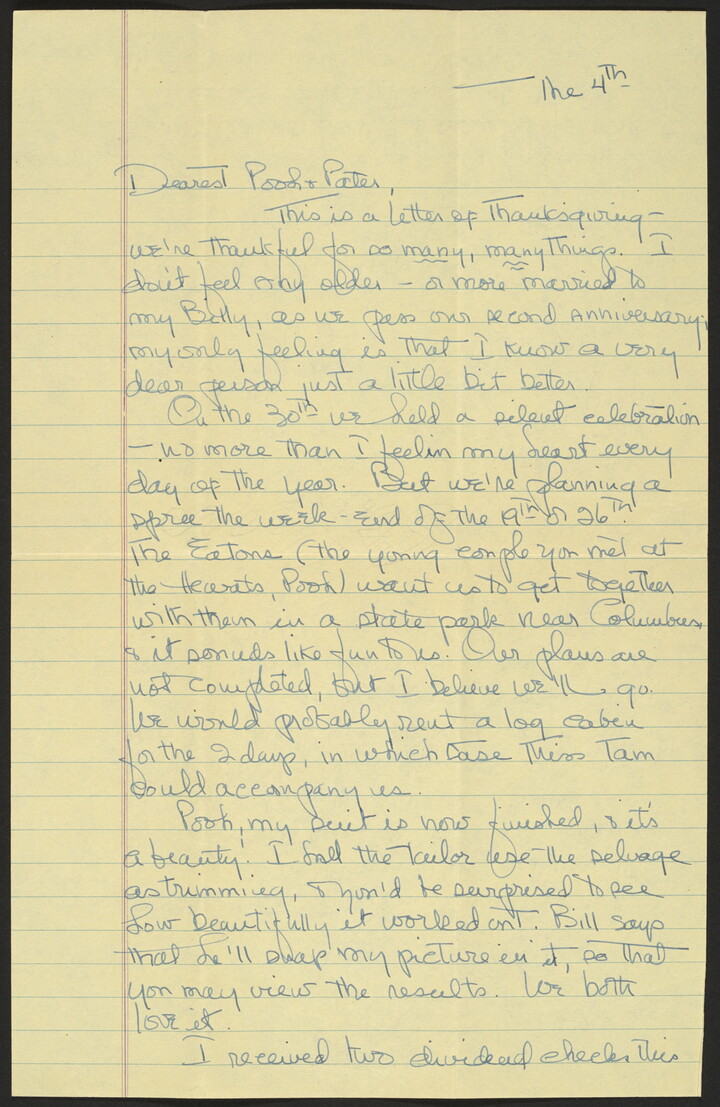 — The 4th
Dearest Pooh & Pater,
This is a letter of Thanksgiving —
we're thankful for so many, many things. I
don't feel any older — or more married to
my Billy, as we pass our second anniversary;
my only feeling is that I know a very
dear person just a little bit better.
On the 30th we held a silent celebration
— no more than I feel in my heart every
day of the year. But we're planning a
spree the week-end of the 19th or 26th.
The Eatons (the young couple you met at
the Hearats, Pooh) want us to get together
with them in a state park near Columbus,
& it sounds like fun to us. Our plans are
not completed, but I believe we'll go.
We would probably rent a log cabin
for the 2 days, in which case Miss Tam
could accompany us.
Pooh, my suit is now finished, & it's
a beauty! I had the tailor use the selvage
as trimming, & you'd be surprised to see
how beautifully it worked out. Bill says
that he'll snap my picture in it, so that
you may view the results. We both
love it.
I received two dividend checks this